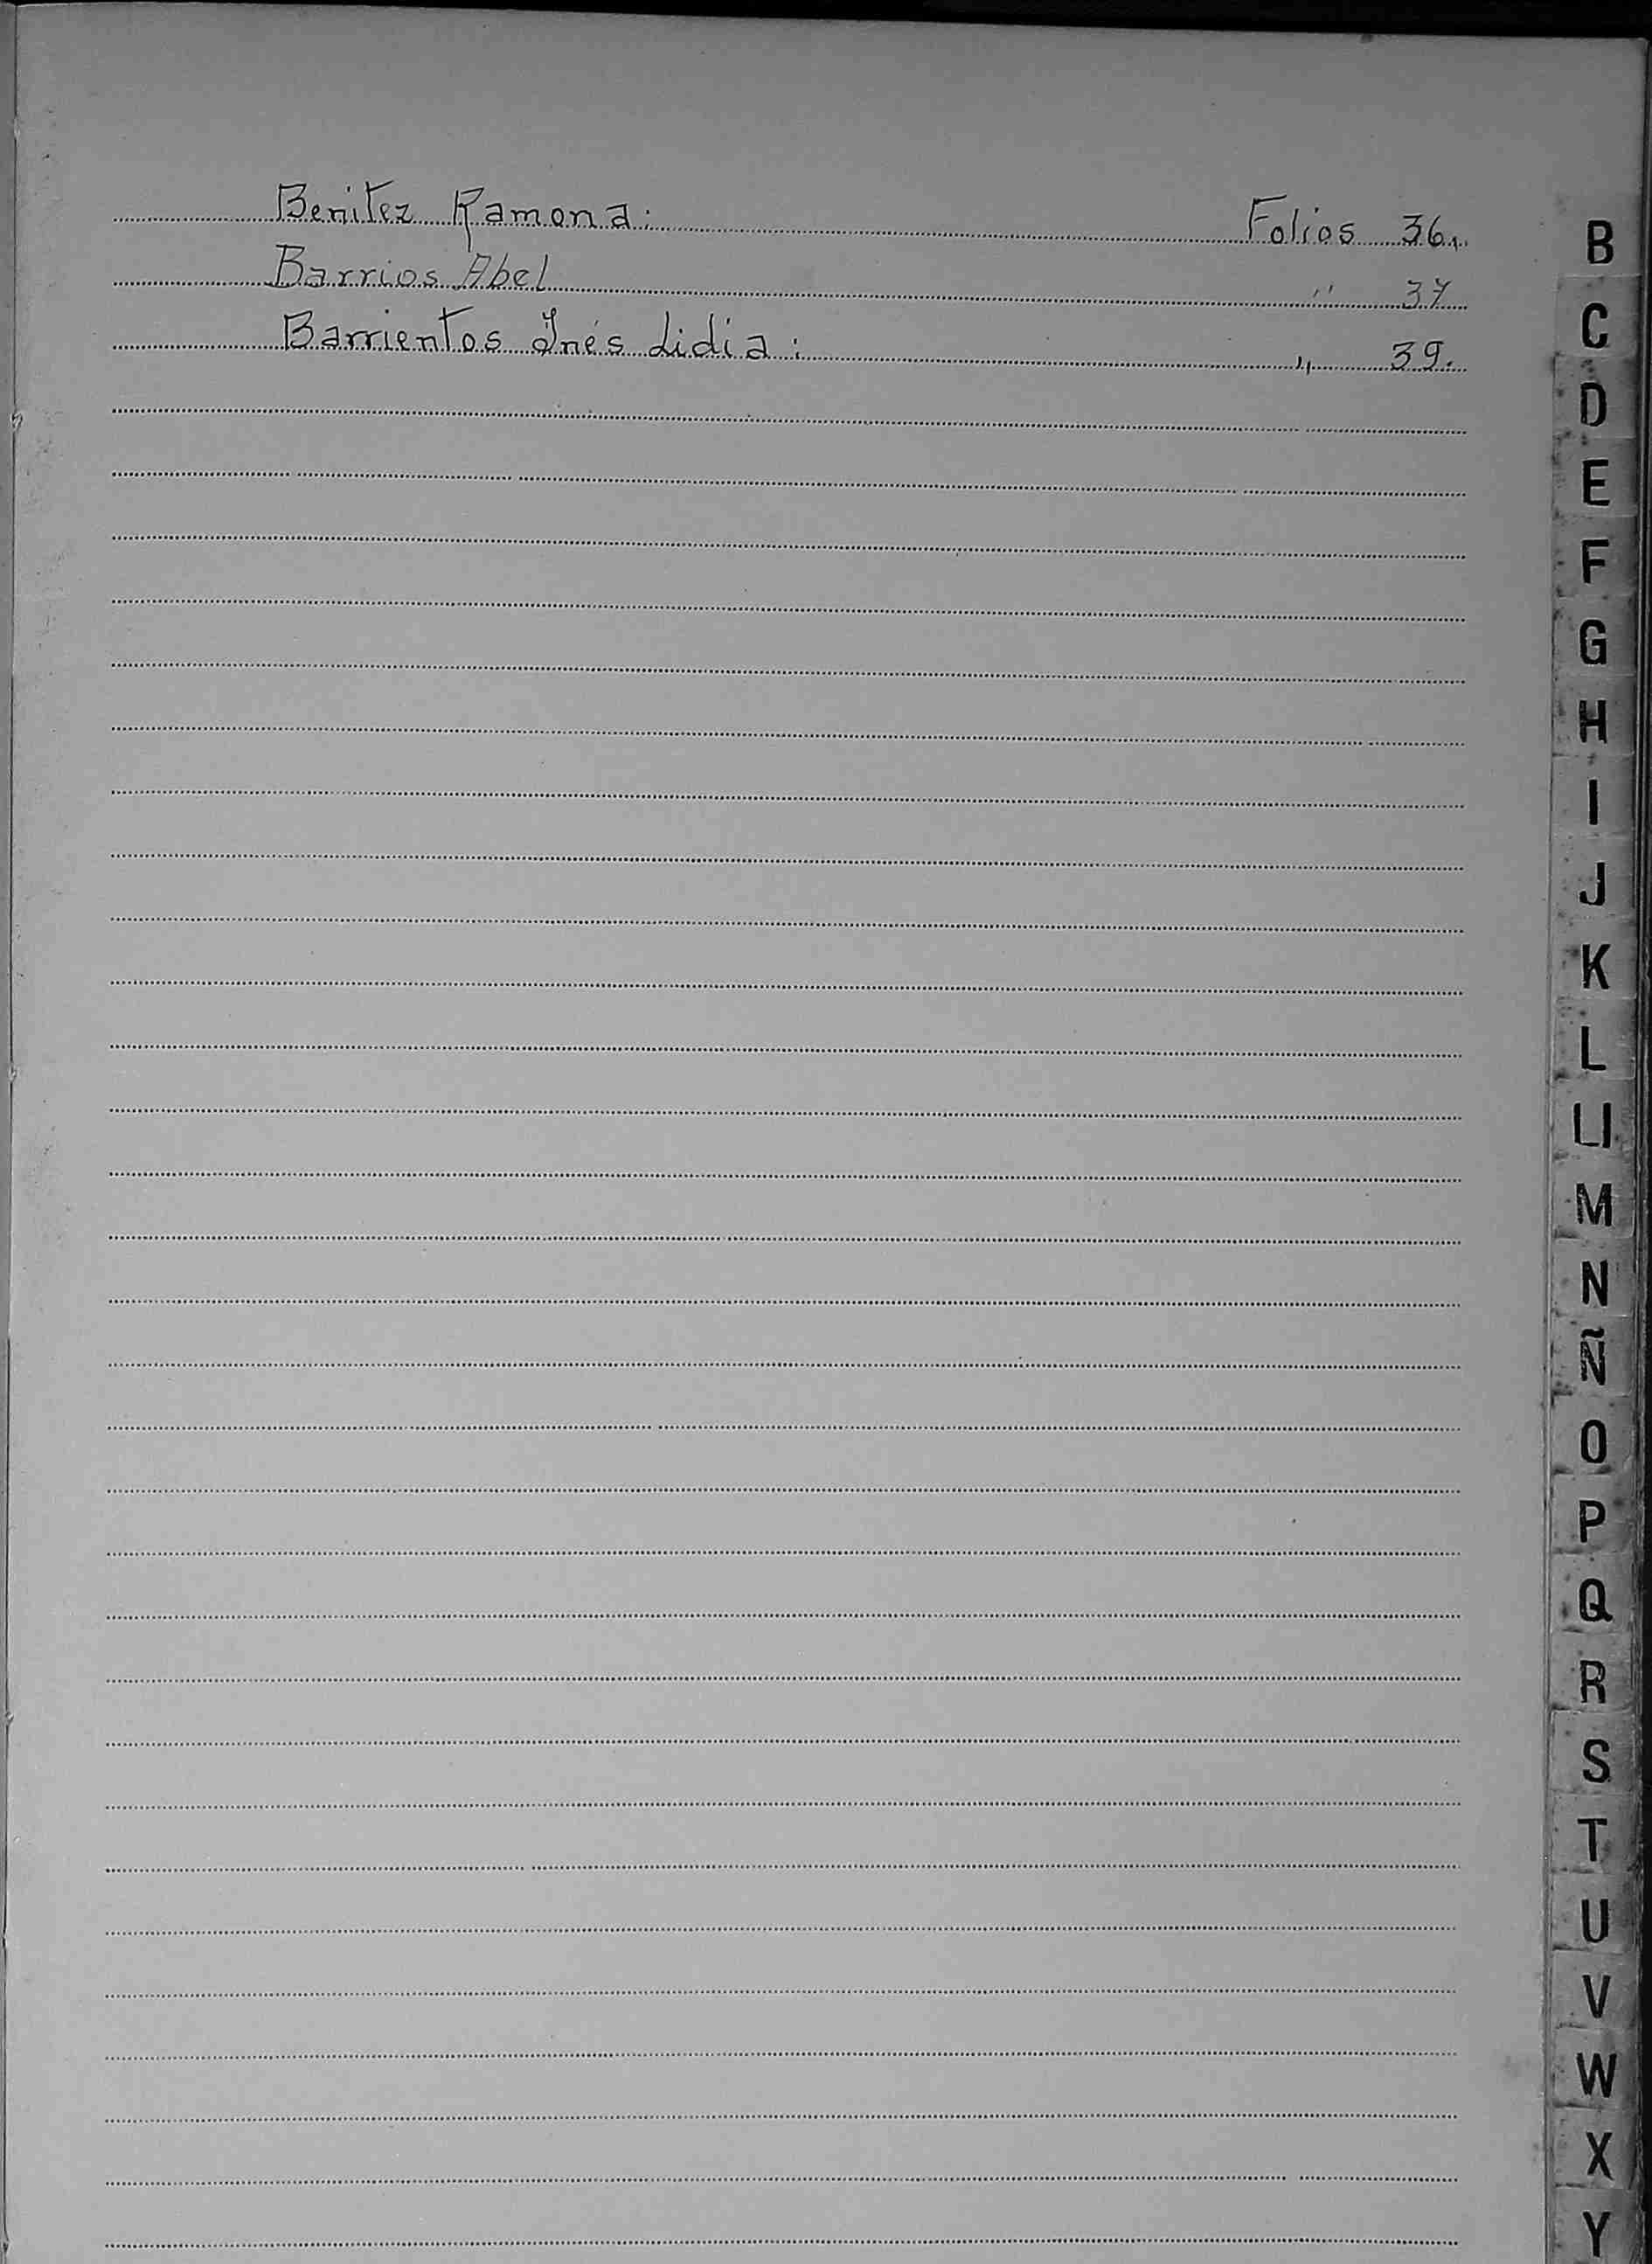 Benitez Ramona: Folios 36.,
Barrios Abel " 37
Barrientos Inés Lidia: " 39.
B
C
D
E
F
G
H
I
J
K
L
Ll
M
N
Ñ
O
P
Q
R
S
T
U
V
W
X
Y